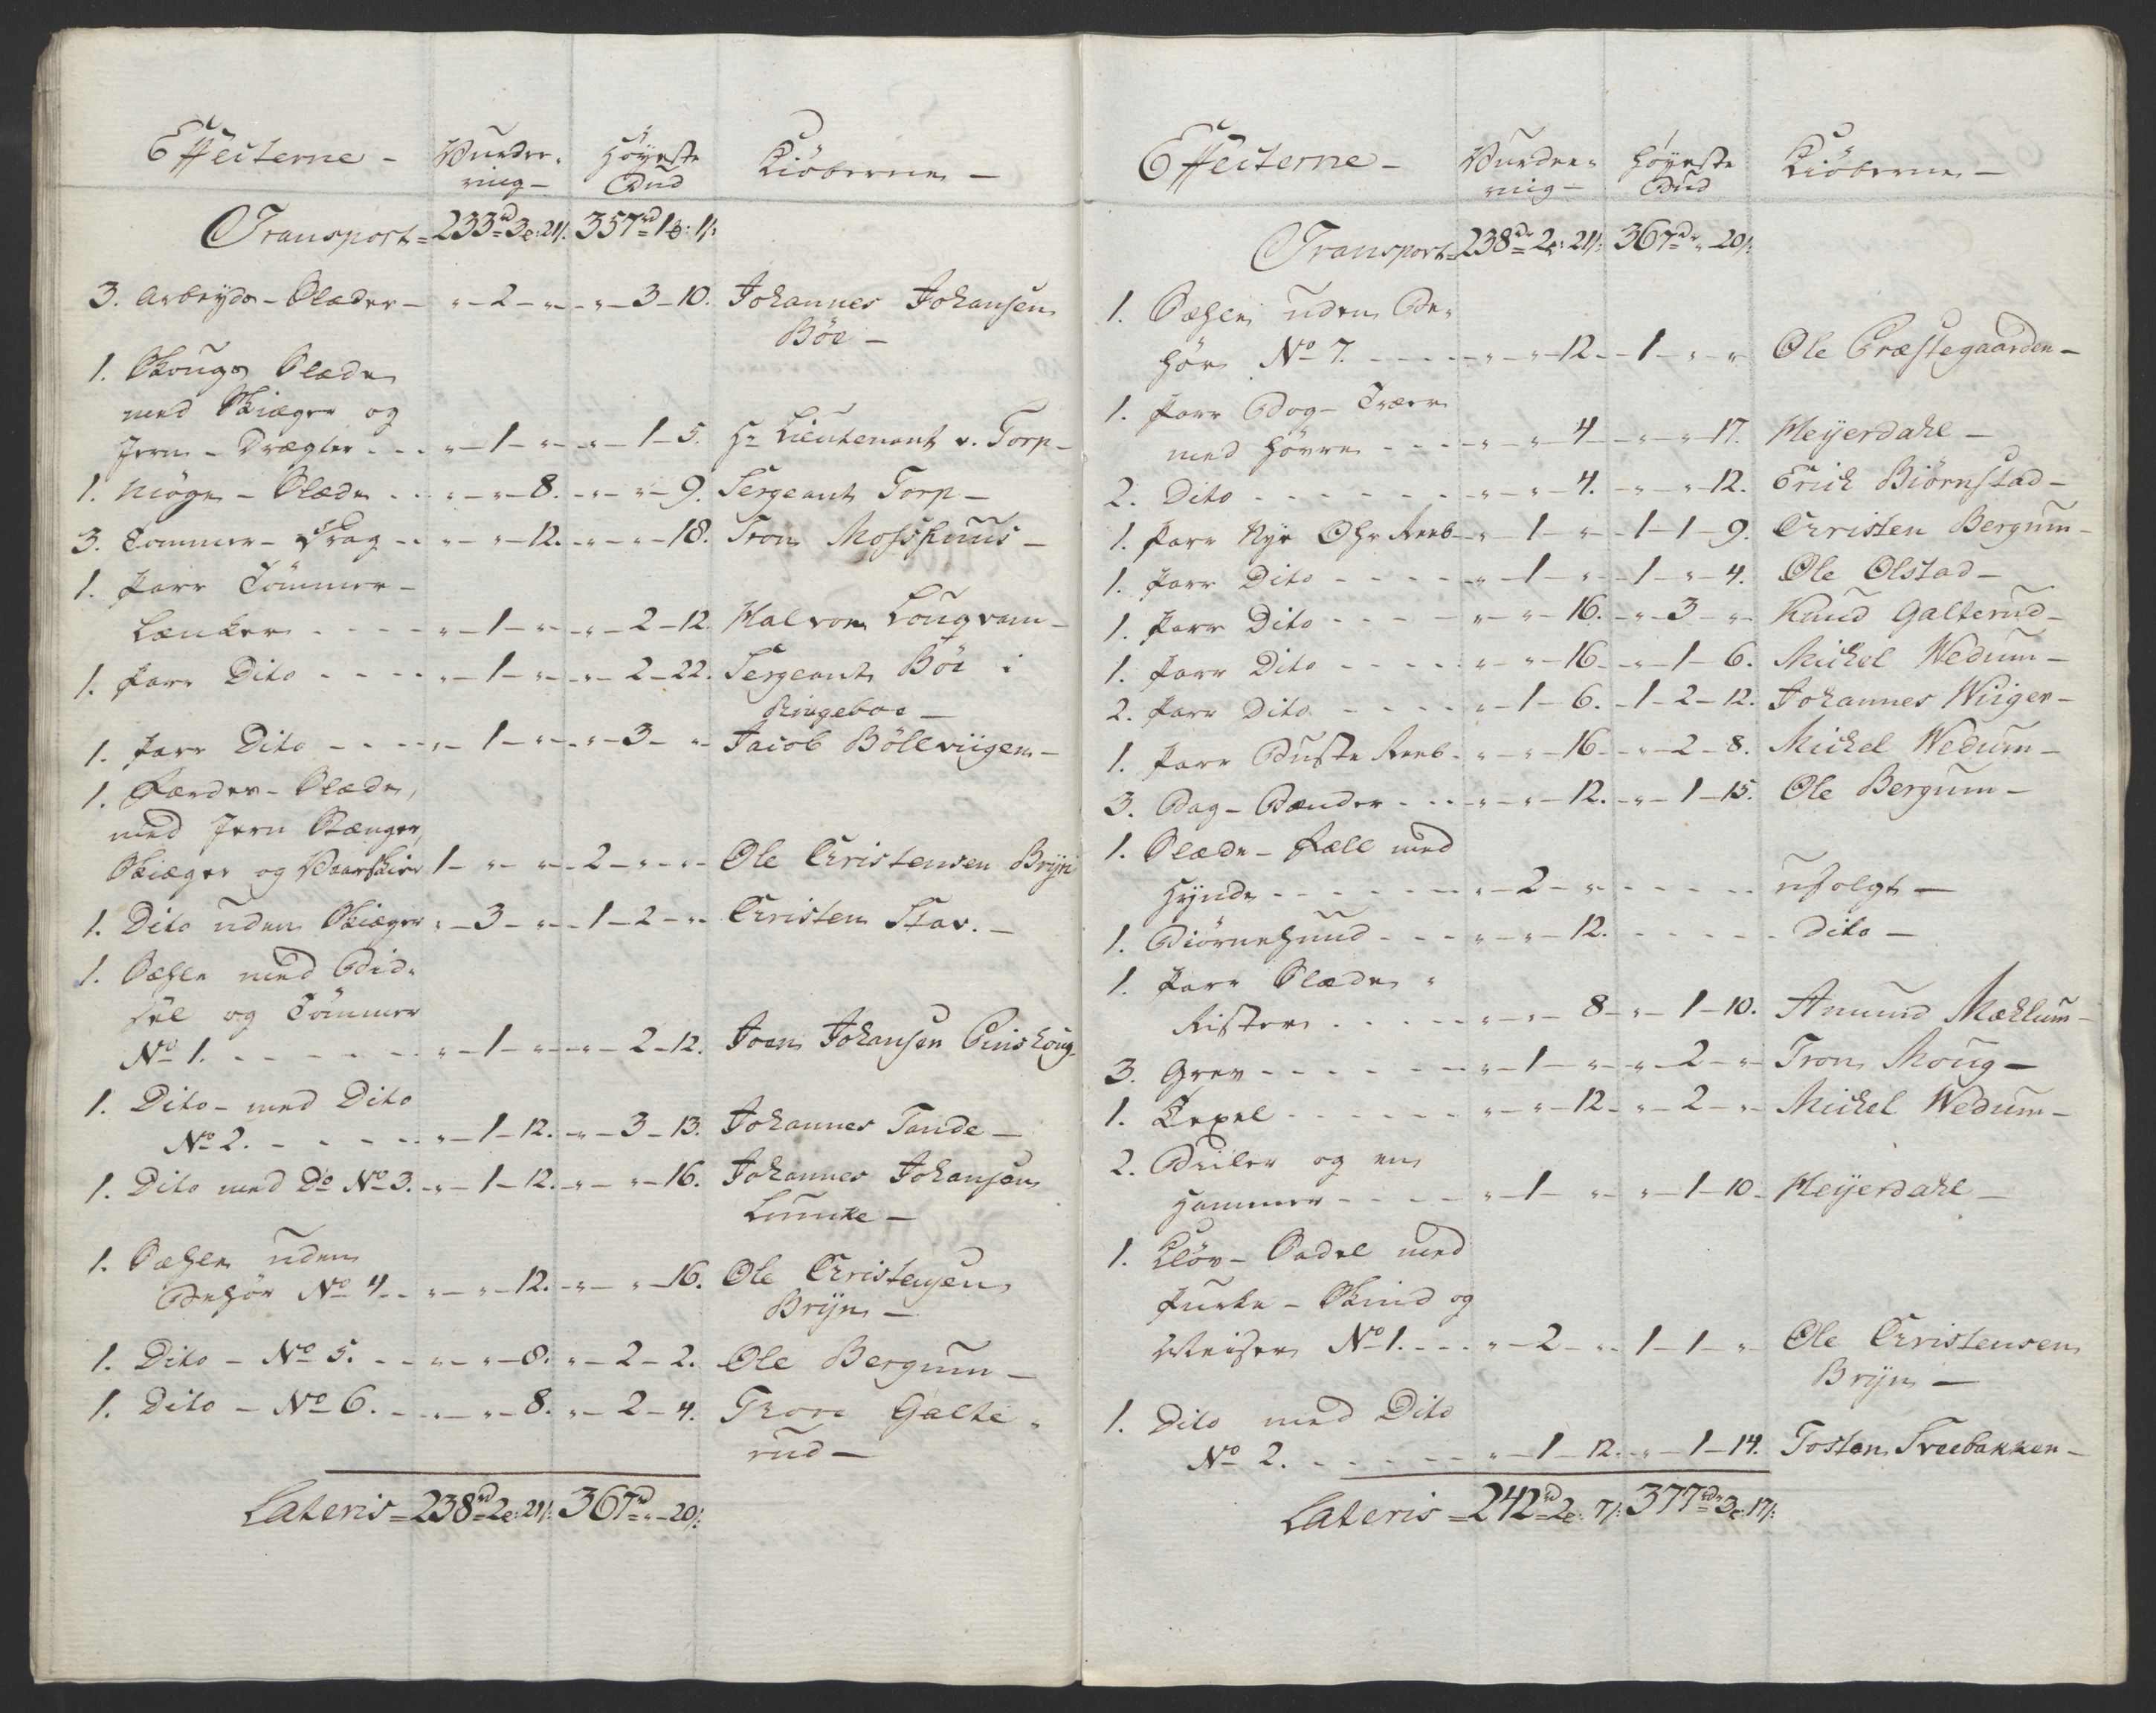 Effecterne - Vurde- Høyeste Kiöberne -
ring - Bud
Transport = 233 rd 3 o: 21 s. 357 rd 1 o: 1 s:
3. Arbeyds - Slæder - " - 2 - " - " - 3 - 10. Johannes Johansen
Böe -
1. Skougs Slæde
med Skiæger og
Jern - Drægter . . . " - 1 - " - " - 1 - 5. Hr Lieutenant v. Torp -
1. Møge - Slæde . . " - " - 8. - " - " - 9. Sergeant Torp -
3. Tømmer - Drag . . " - " - 12. - " - " - 18. Tron Mosshuus -
1. Parr Tömmer -
Lænker . . . . " - 1 - " - " - 2 - 12. Halvor Lougvam -
1. Parr Dito . . . . " - 1 - " - " - 2 - 22. Sergeant Böe i
Ringeboe -
1. Parr Dito - . . . " - 1 - " - " - 3 - " - Jacob Böllviigen -
1. Færdes - Slæde,
med Jern Stænger,
Skiæger og 1 - " - " - 2 - " - " - Ole Christensen Bryn
1. Dito uden Skiæger " - 3 - " - 1 - 2 - " - Christen Stav. -
1. Sæhle med Bid-
sel og Tömmer
No 1. - - - - - . " - 1 - " - " - 2 - 12. Joen Johansen Pinshoug
1. Dito - med Dito
No 2. - - - - . . " - 1 - 12. - " - 3 - 13. Johannes Tande -
1. Dito med Do No 3. - " - 1 - 12. - " - " - 16. Johannes Johansen
Lunke -
1. Sæhle uden
Behör No 4 . . " - " - 12. - " - " - 16. Ole Christensen
Bryn -
1. Dito - No 5. - - " - " - 8. " - 2 - 2. Ole Bergum -
1. Dito - No 6. - - " - " - 8. " - 2 - 4. Thore Galte-
rud -
Lateris = 238 rd 2 o: 21 s. 367 rd " - 20 s.
Effecterne - Vurde- Høyeste Kiöberne -
ring - Bud
Transport = 238 rd 2 o: 21 s: 367 rd " - 20 s:
1. Sæhle uden Be-
hör No 7. - - - - " - " - 12 - 1 - " - " Ole Præstegaarden -
1. Parr Bog - Træer
med Hövre - - - " - " - 4 - " - " - 17. Meyerdahl -
2. Dito . . - - - - - " - " - 4. - " - " - 12. Erich Biörnstad -
1. Parr Nye Reeb - " - 1 - " - 1 - 1 - 9. Christen Bergum -
1. Parr Dito - - - - " - 1 - " - 1 - " - 4. Ole Olstad -
1. Parr Dito - - - - " - " - 16. - " - 3 - " - Knud Galterud -
1. Parr Dito - - - . " - " - 16 - " - 1 - 6. Michel Wedum -
2. Parr Dito - - - . " - 1 - 6. - 1 - 2 - 12. Johannes Wiiger -
1. Parr Buste Reeb - " - " - 16 - " - 2 - 8. Michel Wedum -
3. Bog - Bænder - . . " - " - 12. - " - 1 - 15. Ole Bergum -
1. Slæde - Fæll med
Hynde - - - - - " - 2 - " - - - - - usolgt -
1. Biörnehund - - - " - " - 12. - - - - - Dito -
1. Parr Slæde -
Rister . . . . - " - " - 8 - " - 1 - 10. Amund Mæhlum -
3. Grev - - - - - - " - 1 - " - " - 2 - " - Tron Moug -
1. Texel - - - - - - " - " - 12 - " - 2 - " - Michel Wedum -
2. Biiler og en
Hammer - - - - " - 1 - " - " - 1 - 10 - Meyerdahl -
1. Klöv - Sadel med
Furke - Skind og
Reiser No 1. - . . " - 2 - " . 1 - 1 - " - Ole Christensen
Bryn -
1. Dito med Dito
No 2. - - - - - " - 1 - 12. - " - 1 - 14. Tosten Sveebakken -
Lateris = 242 rd 2 o: 7 s: 377 rd 3 o: 17 s: